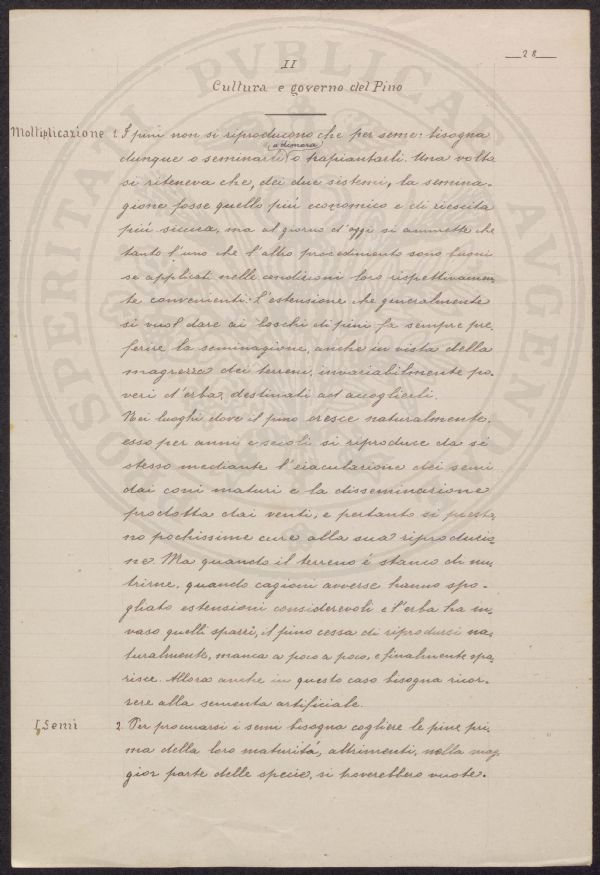 28
II
Cultura e governo del Pino
Moltiplicazione 1. I pini non si riproducono che per seme: bisogna
a dimora
dunque o seminarli o trapiantarli. Una volta
si riteneva che, dei due sistemi, la semina-
gione fosse quello più economico e di riescita
più sicura, ma al giorno d'oggi si ammette che
tanto l'uno che l'altro procedimento sono buoni
se applicati nelle condizioni loro rispettivamen-
te convenienti: L'estensione che generalmente
si vuol dare ai boschi di pini, fa sempre pre-
ferire la seminagione, anche in vista della
magrezza dei terreni, invariabilmente po-
veri d'erba, destinati ad accoglierli.
Nei luoghi dove il pino cresce naturalmente,
esso per anni e secoli si riproduce da sè
stesso mediante l'eiaculazione dei semi
dai coni maturi e la disseminazione
prodotta dai venti, e pertanto si presta-
no pochissime cure alla sua riproduzio-
ne. Ma quando il terreno è stanco di nu-
trirne, quando cagioni avverse hanno spo-
gliato estensioni considerevoli e l'erba ha in-
vaso quelli spazzi, il pino cessa di riprodursi na-
turalmente, manca a poco a poco, e finalmente spa-
risce. Allora anche in questo caso bisogna ricor-
rere alla sementa artificiale.
I Semi 2. Per procurarsi i semi bisogna cogliere le pine pri-
ma della loro maturità, altrimenti, nella mag-
gior parte delle specie, si troverebbero vuote.
PROSPERITATI PVBLICAE AVGENDAE